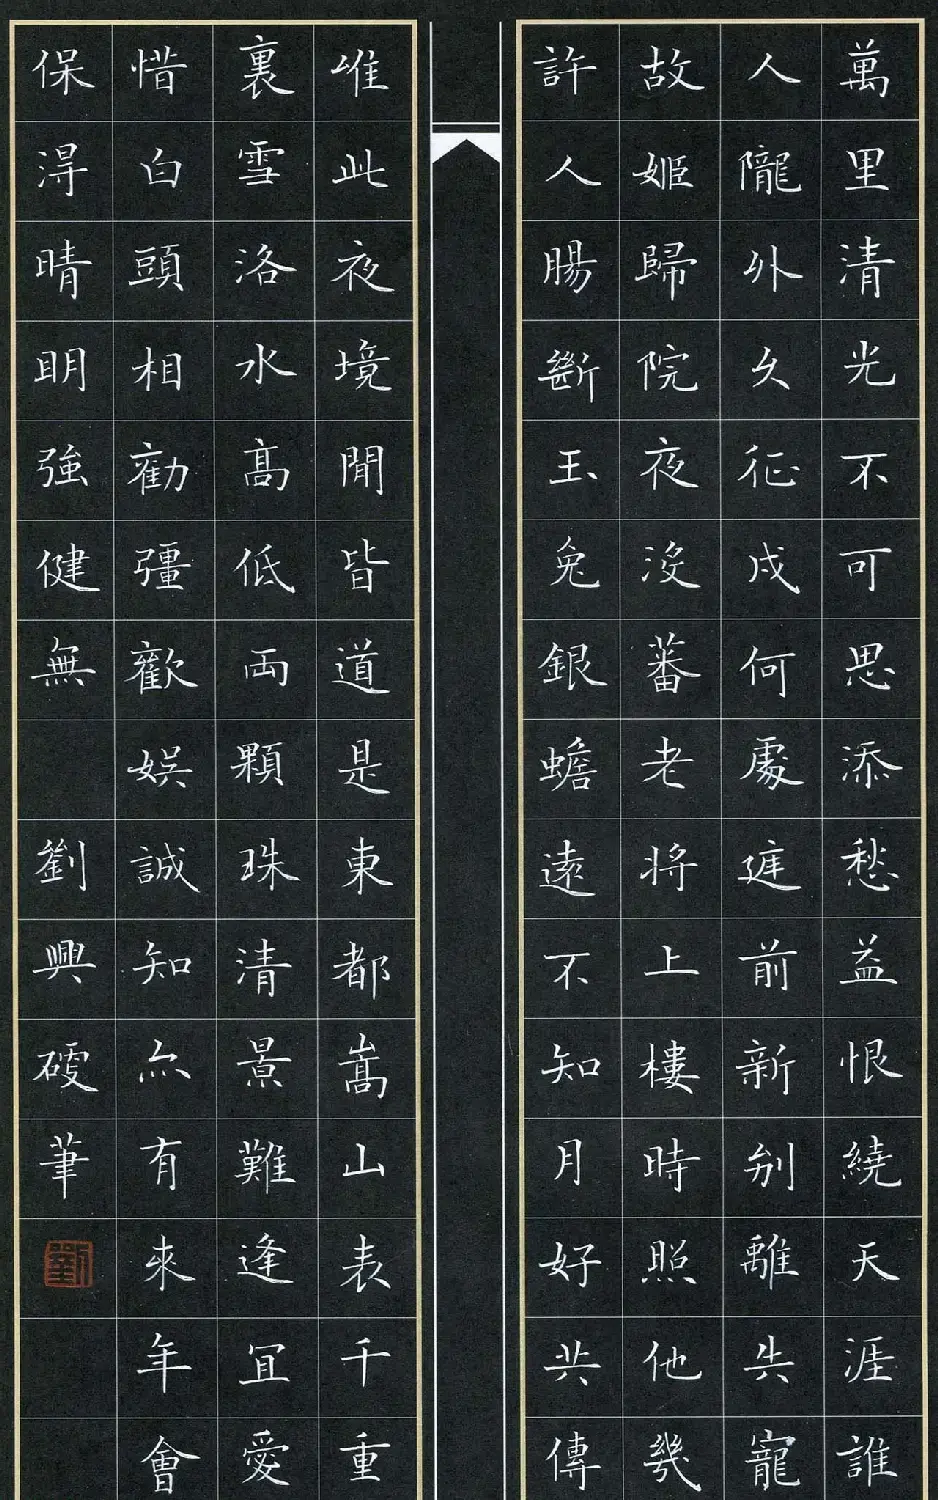 萬里清光不可思添愁益恨繞天涯誰
人隴外久征戍何處庭前新別離失寵
故姬歸院夜沒蕃老將上樓時照他幾
許人腸斷玉兔銀蟾遠不知月好共傳
唯此夜境閒皆道是東都嵩山表千重
裏雪洛水高低兩顆珠清景難逢宜愛
惜白頭相勸彊歡娛誠知亦有來年會
保得晴明強健無
劉興硬筆
劉